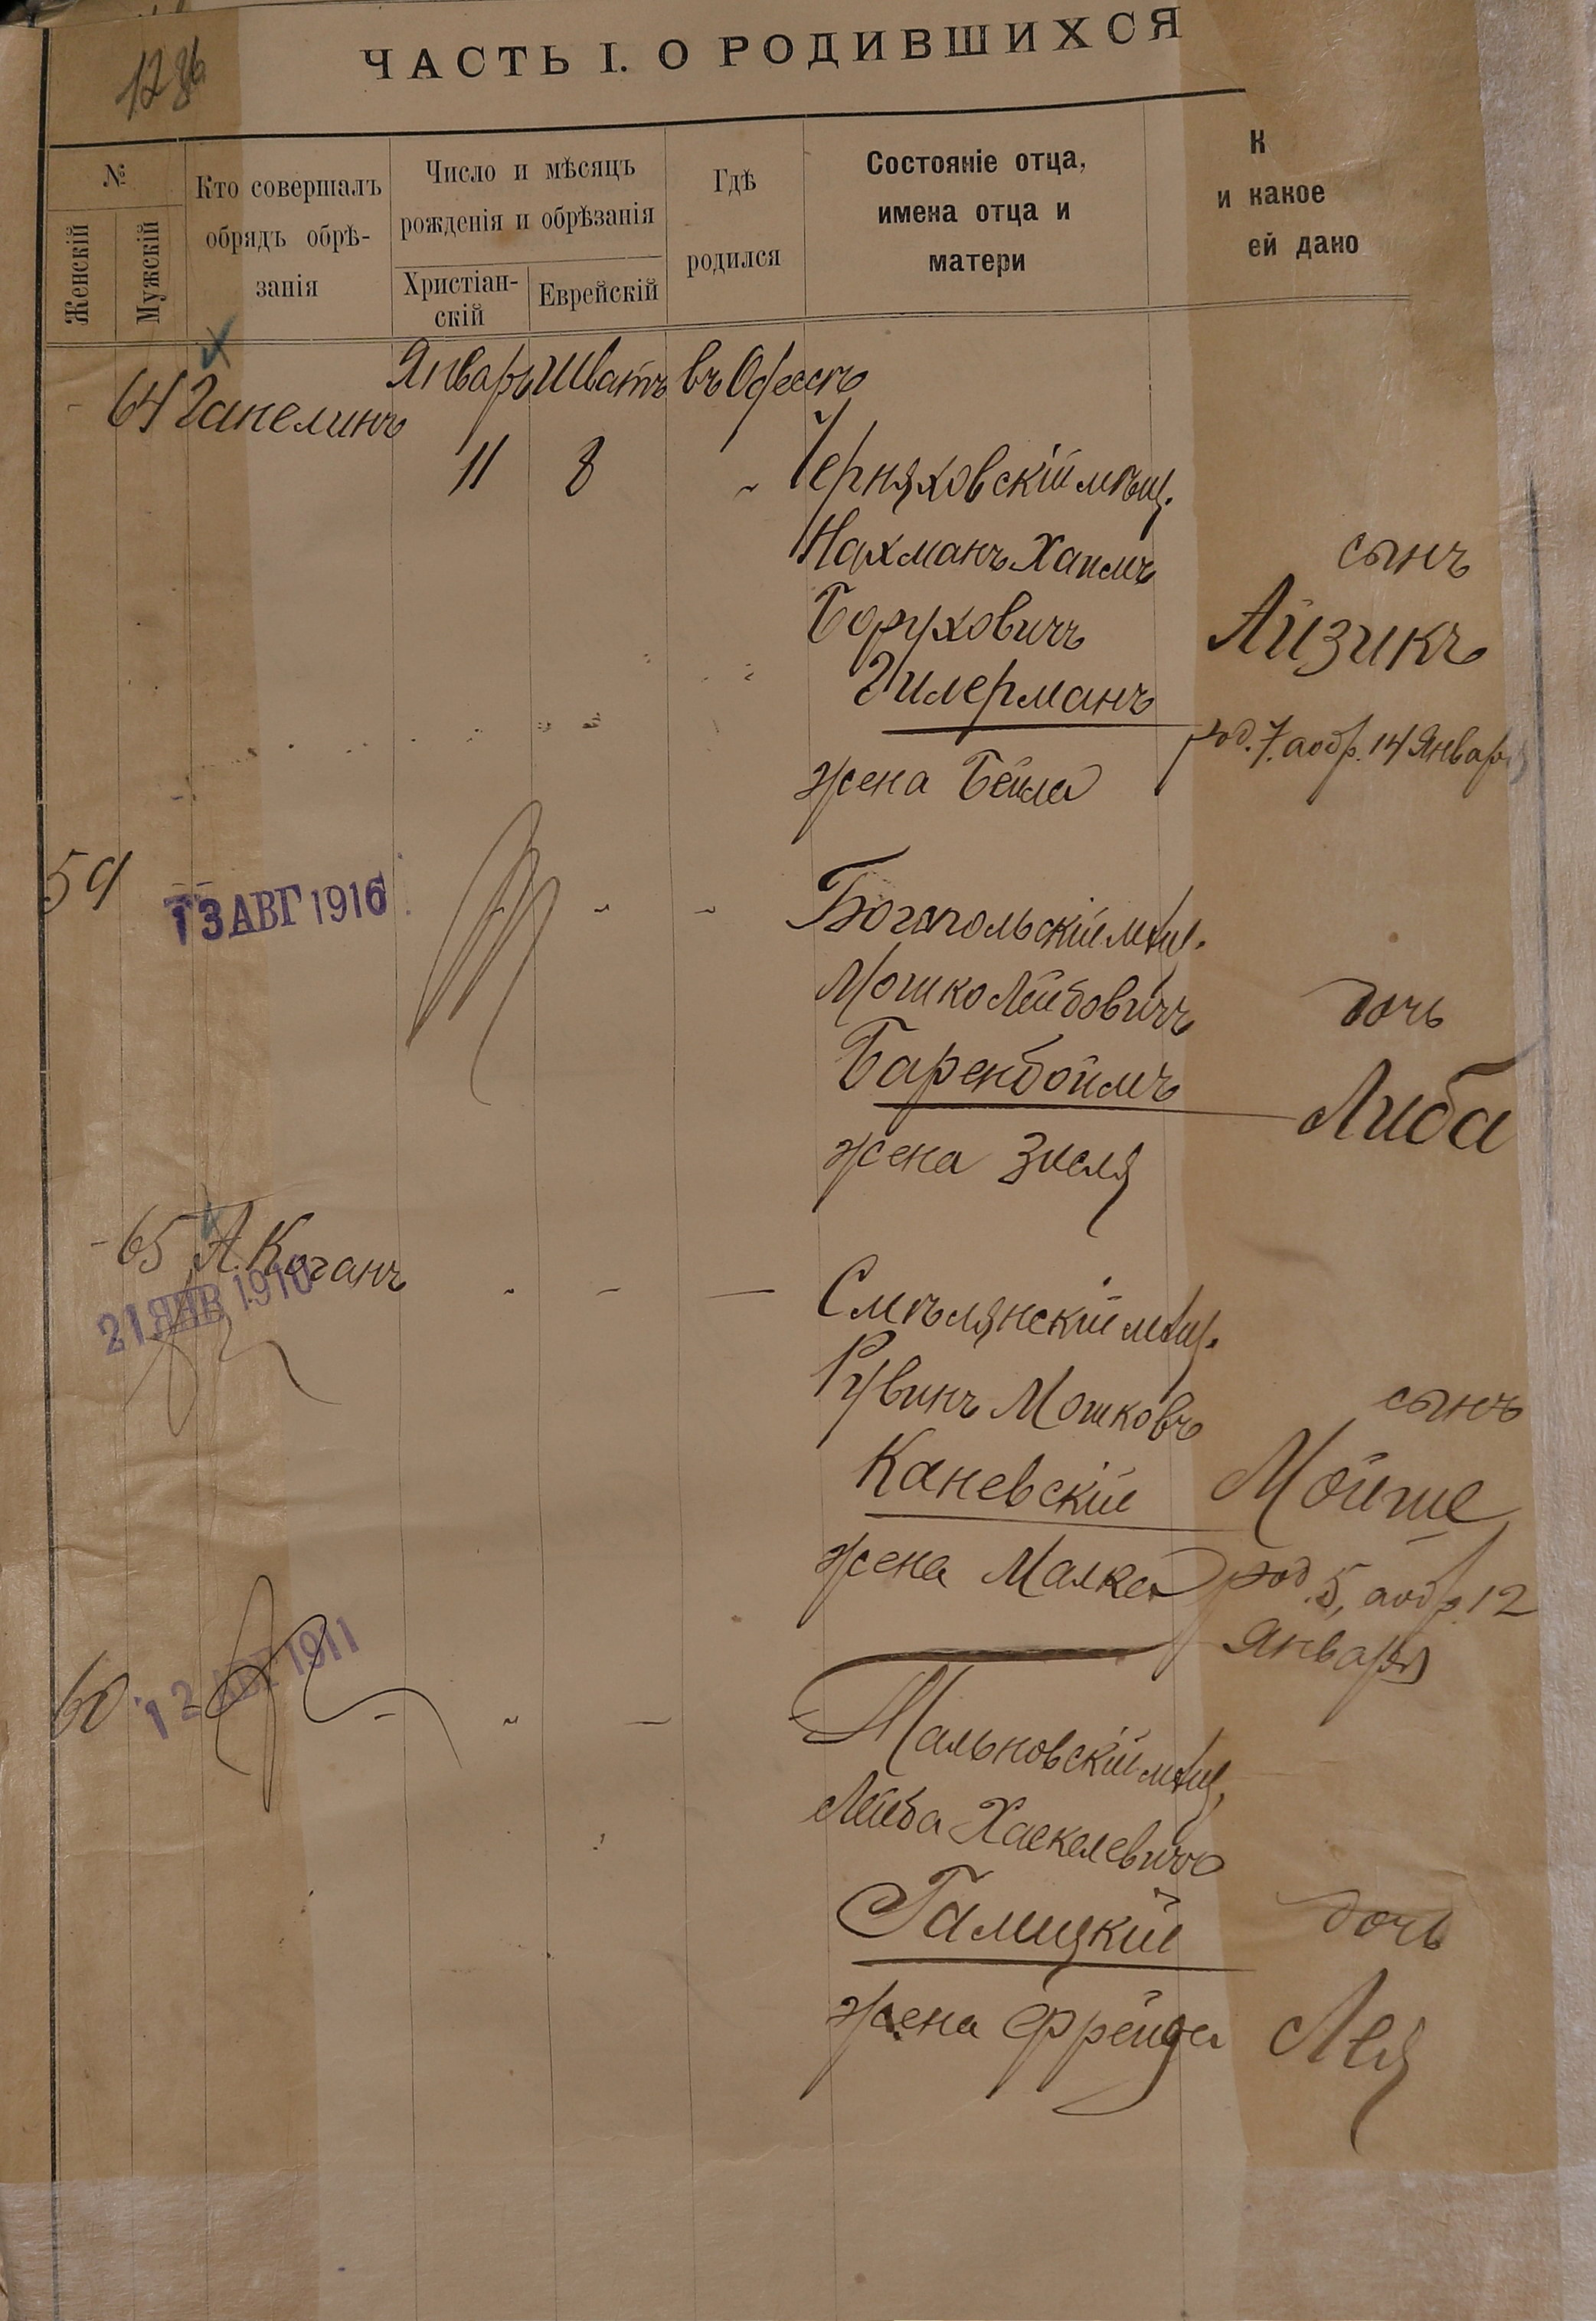 1286
ЧАСТЬ I. О РОДИВШИХСЯ
№
Женскій
Мужскій
Кто совершалъ
обрядъ обрѣ-
занія
Число и мѣсяцъ
рожденія и обрѣзанія
Христіан-
скій
Еврейскій
Гдѣ
родился
Состояніе отца,
имена отца и
матери
К
и какое
ей дано
Январь Шватъ въ Одессѣ
64 Ганелинъ
11 8 Черняховскій мѣщ.
Нахманъ Хаимъ
Боруховичъ
Гилерманъ
жена Бейла
сынъ
Айзикъ
род. 7, а обр. 14 Января
59
13 АВГ 1916
Богопольскій мѣщ.
Мошко Лейбовичъ
Баренбоймъ
жена Зисля
дочь
Либа
65 А. Коганъ
21 ЯНВ 1910
Смѣлянскій мѣщ.
Рувинъ Мошковъ
Каневскій
жена Малка
сынъ
Мойше
род. 5, а обр. 12
Января
60
12 АВГ 1911
мѣщ.
Лейба Хаскелевичъ
Галицкій
жена Фрейда
дочь
Лея